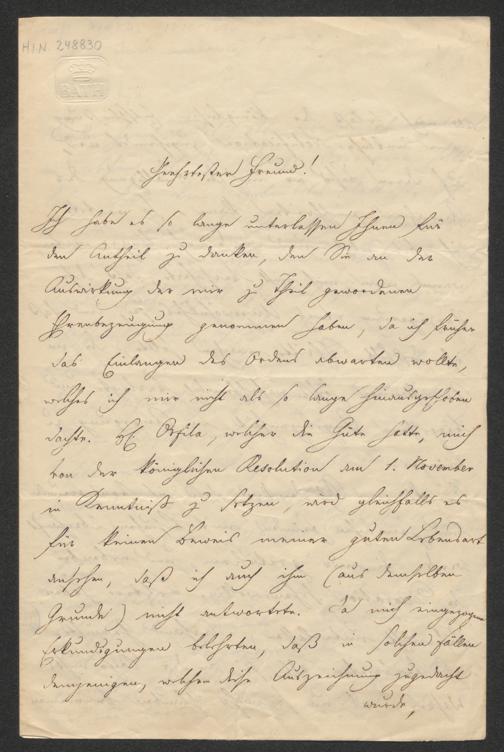 H.I.N. 248830
BATH
Geehrtester Freund!
Ich habe es so lange unterlassen Ihnen für
den Antheil zu danken, den Sie an der
Auswirkung der mir zu Theil gewordenen
Ehrenbezeugung genommen haben, da ich früher
das Einlangen des Ordens abwarten wollte,
welches ich mir nicht als so lange hinausgeschoben
dachte. H. Orfila, welcher die Güte hatte, mich
von der königlichen Resolution am 1. November
in Kenntniß zu setzen, wird gleichfalls es
für keinen Beweis meiner guten Lebensart
ansehen, daß ich auch ihm (aus demselben
Grunde) nicht antwortete. Da mich eingezogene
Erkundigungen belehrten, daß in solchen Fällen
demjenigen, welchem diese Auszeichnung zugedacht
wurde,